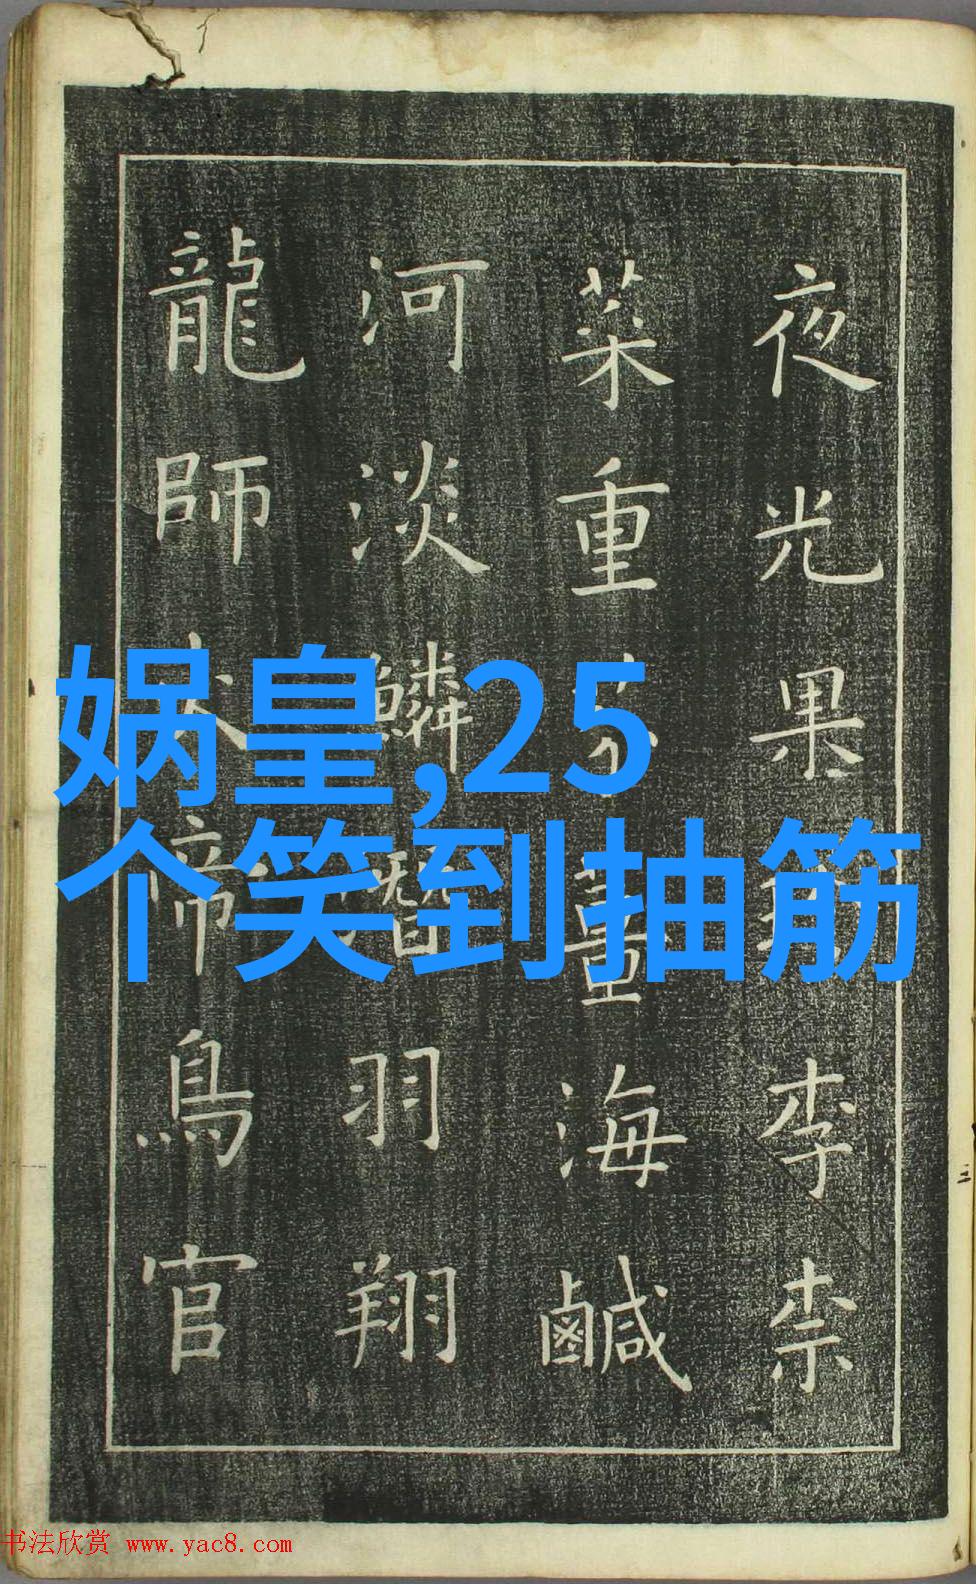 夜光果珍李柰
菜重芥薑海鹹
河淡鱗潛羽翔
龍師火帝鳥官
娲皇,25
个笑到抽筋
书法欣赏 www.yac8.com